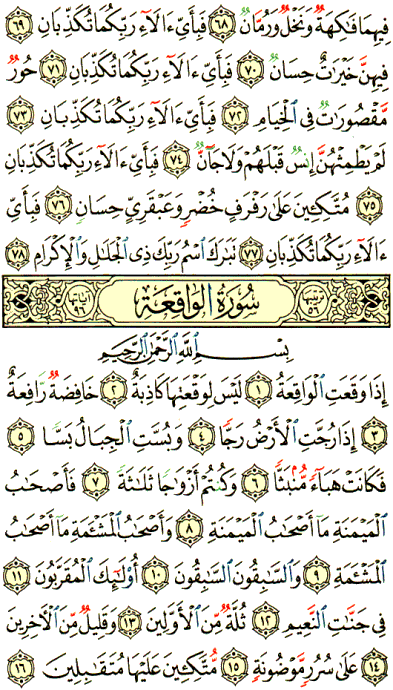 فِيهِمَا فَـٰكِهَةٌ وَنَخْلٌ وَرُمَّانٌ ٦٨ فَبِأَىِّ ءَالَآءِ رَبِّكُمَا تُكَذِّبَانِ ٦٩
فِيهِنَّ خَيْرَٰتٌ حِسَانٌ ٧٠ فَبِأَىِّ ءَالَآءِ رَبِّكُمَا تُكَذِّبَانِ ٧١ حُورٌ
مَّقْصُورَٰتٌ فِى ٱلْخِيَامِ ٧٢ فَبِأَىِّ ءَالَآءِ رَبِّكُمَا تُكَذِّبَانِ ٧٣
لَمْ يَطْمِثْهُنَّ إِنسٌ قَبْلَهُمْ وَلَا جَآنٌّ ٧٤ فَبِأَىِّ ءَالَآءِ رَبِّكُمَا تُكَذِّبَانِ
٧٥ مُتَّكِـِٔينَ عَلَىٰ رَفْرَفٍ خُضْرٍ وَعَبْقَرِىٍّ حِسَانٍ ٧٦ فَبِأَىِّ
ءَالَآءِ رَبِّكُمَا تُكَذِّبَانِ ٧٧ تَبَـٰرَكَ ٱسْمُ رَبِّكَ ذِى ٱلْجَلَـٰلِ وَٱلْإِكْرَامِ ٧٨
ترتيبها ٥٦ سُورَةُ الوَاقِعَةِ آياتها ٩٦
بِسْمِ ٱللَّهِ ٱلرَّحْمَـٰنِ ٱلرَّحِيمِ
إِذَا وَقَعَتِ ٱلْوَاقِعَةُ ١ لَيْسَ لِوَقْعَتِهَا كَاذِبَةٌ ٢ خَافِضَةٌ رَّافِعَةٌ
٣ إِذَا رُجَّتِ ٱلْأَرْضُ رَجًّا ٤ وَبُسَّتِ ٱلْجِبَالُ بَسًّا ٥
فَكَانَتْ هَبَآءً مُّنۢبَثًّا ٦ وَكُنتُمْ أَزْوَٰجًا ثَلَـٰثَةً ٧ فَأَصْحَـٰبُ
ٱلْمَيْمَنَةِ مَآ أَصْحَـٰبُ ٱلْمَيْمَنَةِ ٨ وَأَصْحَـٰبُ ٱلْمَشْـَٔمَةِ مَآ أَصْحَـٰبُ
ٱلْمَشْـَٔمَةِ ٩ وَٱلسَّـٰبِقُونَ ٱلسَّـٰبِقُونَ ١٠ أُو۟لَـٰٓئِكَ ٱلْمُقَرَّبُونَ ١١
فِى جَنَّـٰتِ ٱلنَّعِيمِ ١٢ ثُلَّةٌ مِّنَ ٱلْأَوَّلِينَ ١٣ وَقَلِيلٌ مِّنَ ٱلْـَٔاخِرِينَ
١٤ عَلَىٰ سُرُرٍ مَّوْضُونَةٍ ١٥ مُّتَّكِـِٔينَ عَلَيْهَا مُتَقَـٰبِلِينَ ١٦